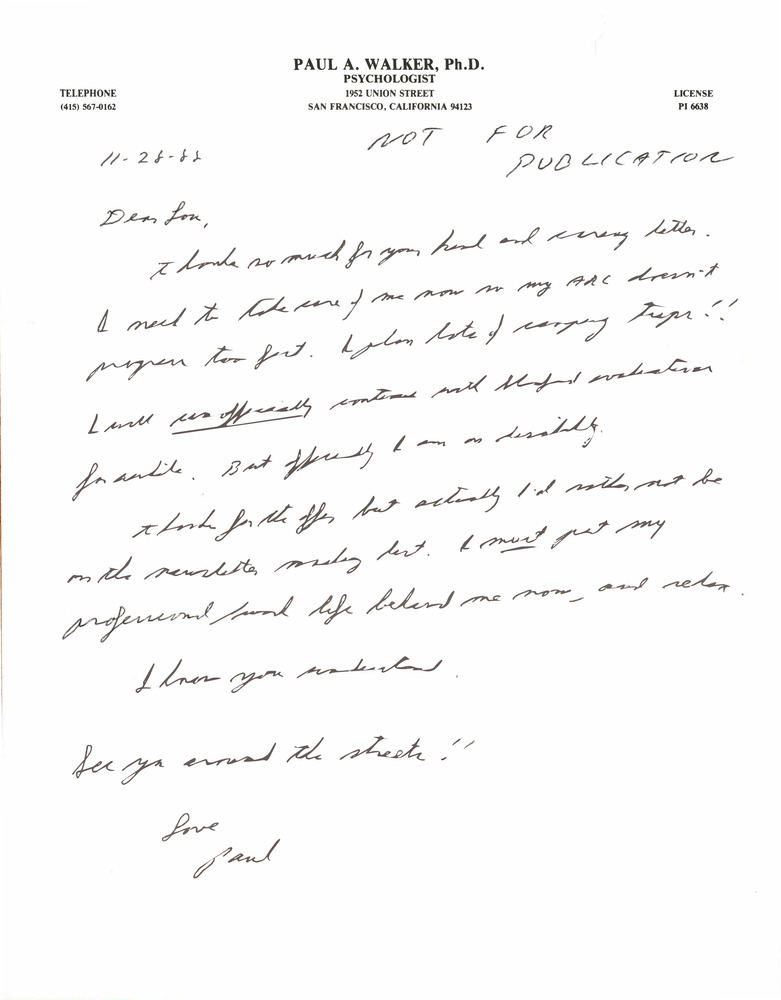 PAUL A. WALKER, Ph.D.
PSYCHOLOGIST
TELEPHONE 1952 UNION STREET LICENSE
(415) 567-0162 SAN FRANCISCO, CALIFORNIA 94123 PI 6638
NOT FOR
11-28-88 PUBLICATION
Dear Lou,
Thanks so much for your kind and caring letter.
I need to take care of me now so my ARC doesn't
progress too fast. I plan lots of camping trips!!
I will unofficially continue with evaluations
for awhile. But officially I am on disability.
Thanks for the offer but actually I'd rather not be
on the newsletter mailing list. I must put my
professional/work life behind me now, and relax.
I know you understand.
See you around the streets!!
Love
Paul